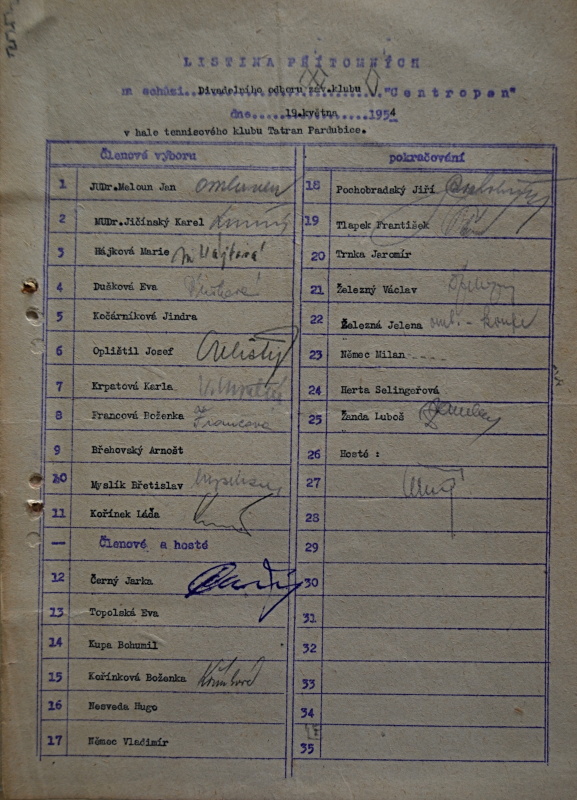 LISTINA PŘÍTOMNÝCH
na schůzi..Divadelního odboru záv.klubu.."Centropen"
dne....19.května....1954
v hale tennisového klubu Tatran Pardubice.
Členové výboru
1 JUDr.Meloun Jan omluven
2 MUDr.Jičínský Karel
3 Hájková Marie M Hájková
4 Dušková Eva Dušková
5 Kočárníková Jindra
6 Oplištil Josef Oplištil
7 Krpatová Karla
8 Francová Boženka Francová
9 Břahovský Arnošt
10 Myslík Břetislav
11 Kořínek Láďa
— Členové a hosté
12 Černý Jarka
13 Topolská Eva
14 Kupa Bohumil
15 Kořínková Boženka
16 Nesveda Hugo
17 Němec Vladimír
pokračování
18 Pochobradský Jiří
19 Tlapek František
20 Trnka Jaromír
21 Železný Václav
22 Železná Jelena oml. -
23 Němec Milan ----
24 Herta Selingeřová
25 Žanda Luboš
26 Hosté :
27
28
29
30
31
32
33
34
35